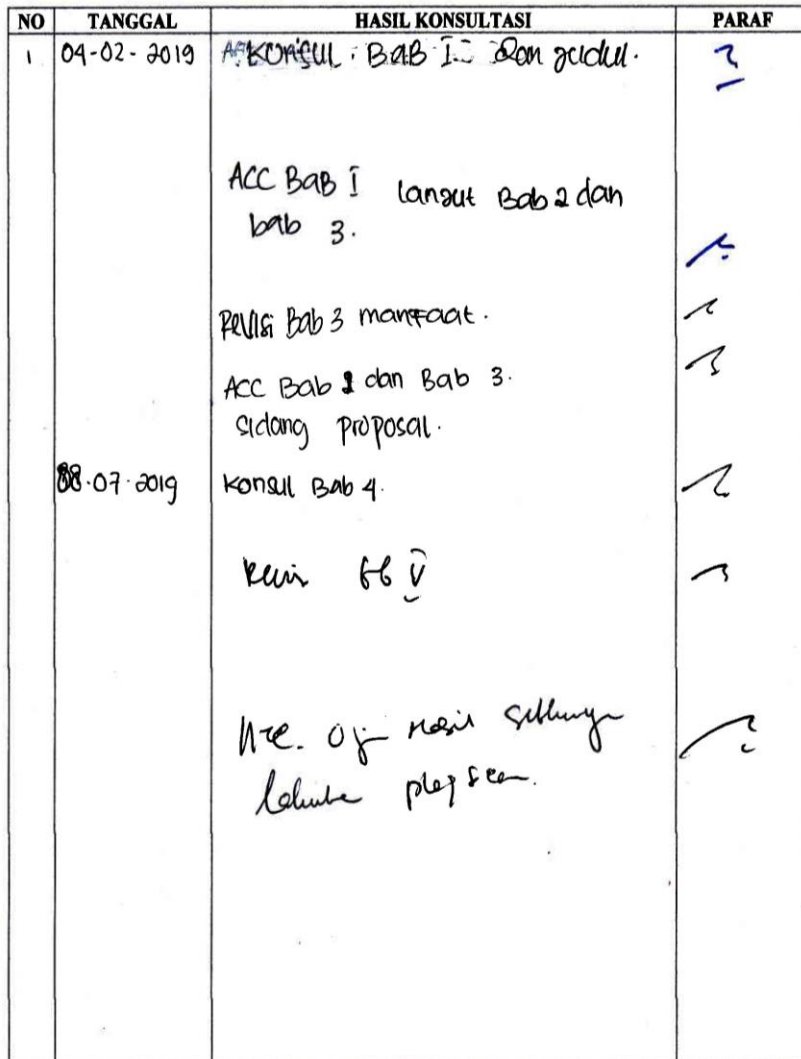 NO TANGGAL HASIL KONSULTASI PARAF
1 04-02-2019 KONSUL. BAB I dan judul.
ACC BAB I lanjut Bab 2 dan
bab 3.
Revisi Bab 3 manfaat.
ACC Bab 2 dan Bab 3.
sidang proposal.
08.07.2019 Konsul Bab 4.
V
Acc. Hasil